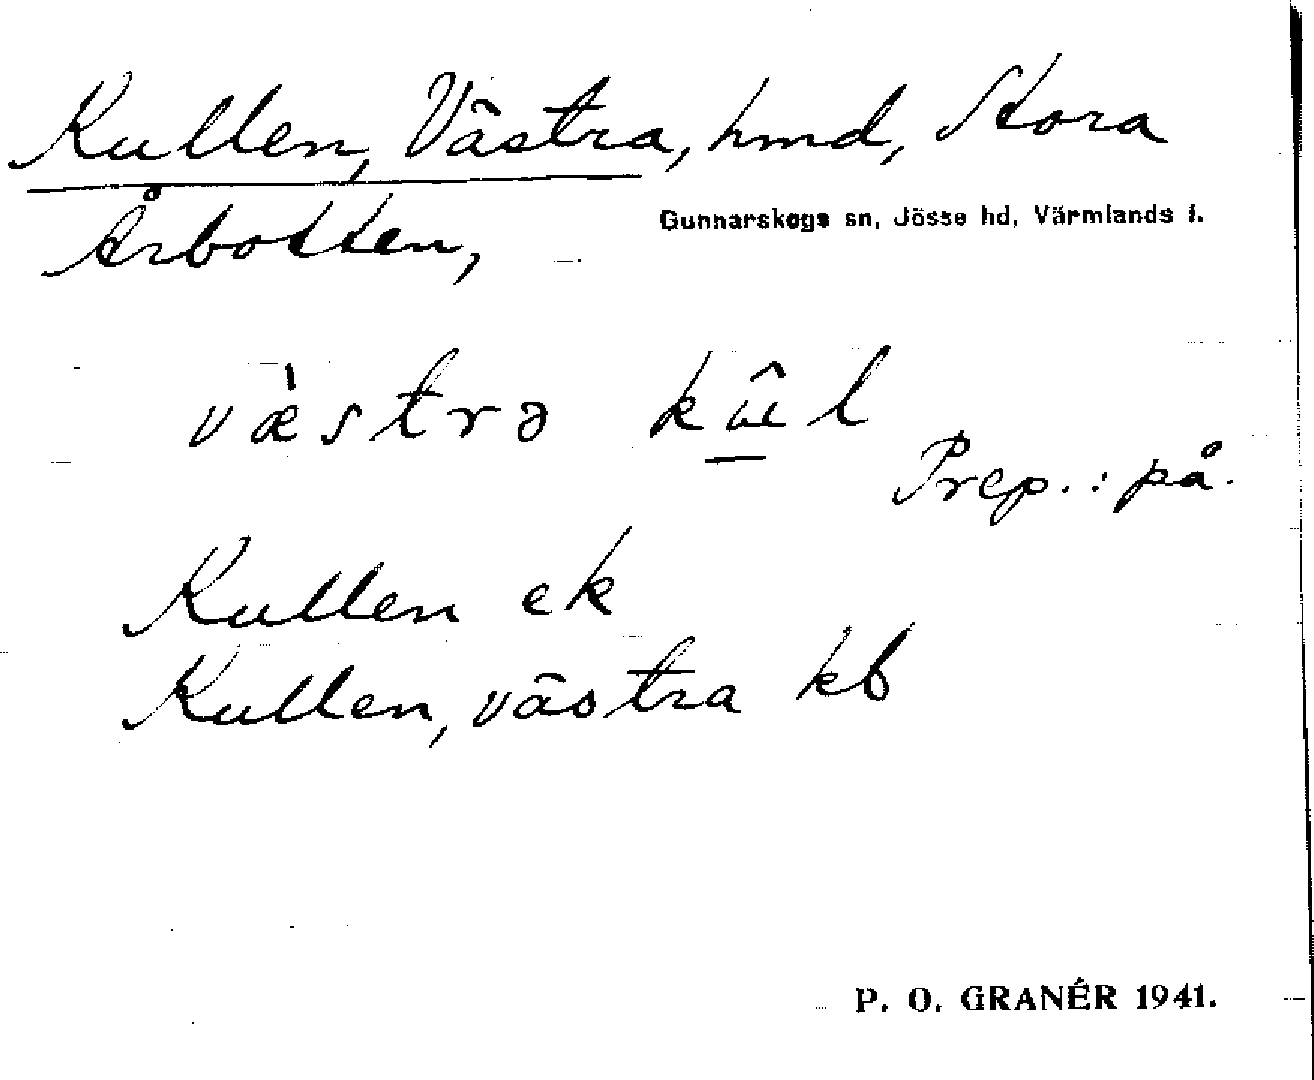 Kullen, Västra, hmd, Stora
Årbotten,
Gunnarskogs sn, Jösse hd, Värmlands l.
væ̀strə kûl
Prep.: på.
Kullen ek
Kullen, västra kb
P. O. GRANÉR 1941.